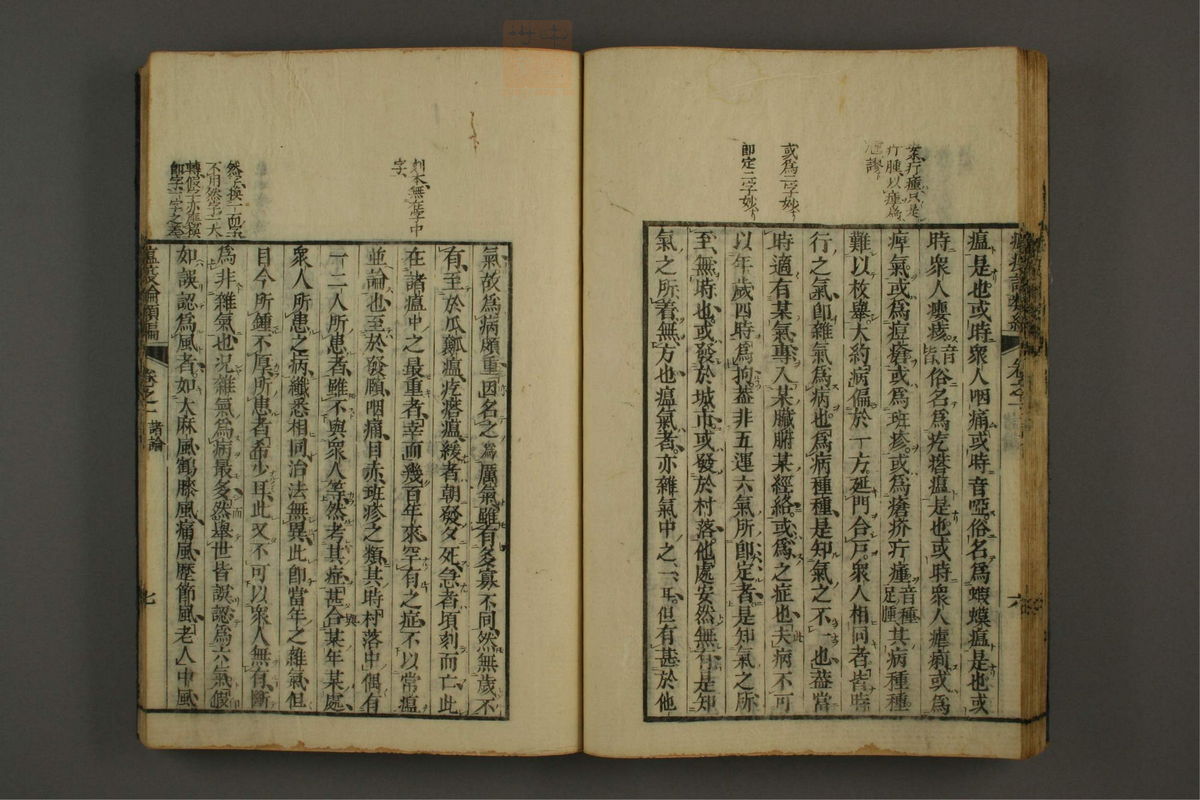 案疔瘇只是
疔腫以瘇為
謬
或為二字妙
即定二字妙
瘟是也或時衆人咽痛或時音啞俗名為蝦蟆瘟是也或
時衆人瘿痎音皆俗名為疙瘩瘟是也或時衆人瘧痢或為
痺氣或為痘瘡或為班疹或為瘡疥疔瘇音種足腫其病種種
難以枚舉大約病偏於一方延門合戸衆人相同者皆時
行之氣即雜氣為病也為病種種是知氣之不一也蓋當
時適有某氣專入某臟腑某經絡或為之症也夫病不可
以年歲四時為拘蓋非五運六氣所即定者是知氣之所
至無時也或發於城市或發於村落他處安然無有是知
氣之所着無方也瘟氣者亦雜氣中之一耳但有甚於他
卷之一
六
刻本無落字中
字
然云換一而字
不用然字一大
轉假字亦應換
即字二字之妙
氣故為病頗重因名之為厲氣雖有多寡不同然無歲不
有至於瓜瓤瘟疙瘩瘟緩者朝發夕死急者頃刻而亡此
在諸瘟中之最重者幸而幾百年來罕有之症不以常瘟
並論也至於發頤咽痛目赤班疹之類其時村落中偶有
一二人所患者雖不與衆人等然考其症甚合某年某處
衆人所患之病纖悉相同治法無異此即當年之雜氣但
目今所鍾不厚所患者希少耳此又不可以衆人無有斷
為非雜氣也況雜氣為病最多然舉世皆誤認為六氣假
如誤認為風者如大麻風鶴膝風痛風歴節風老人中風
瘟疫論類編
卷之一
諸論
七